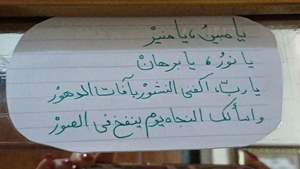 يا مبين، يا منير
يا نور، يا برهان
يا رب، اكفني الشرور وآفات الدهور
وأسألك النجاة يوم ينفخ في الصور